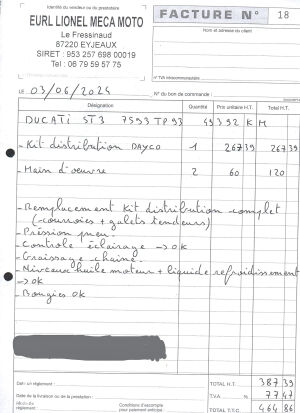 Identité du vendeur ou du prestataire
EURL LIONEL MECA MOTO
Le Fressinaud
87220 EYJEAUX
SIRET : 953 257 698 00019
Tel : 06 79 59 57 75
FACTURE N° 18
Nom et adresse du client
N° TVA Intracommunautaire
LE : 03/06/2024
N° du bon de commande :
Désignation Quantité Prix unitaire H.T. Total H.T.
DUCATI ST3 7593 TP 93 49392 KM
- Kit distribution DAYCO 1 267,39 267,39
- Main d'oeuvre 2 60 120
- Remplacement Kit distribution complet
(courroies + galets tendeurs)
- Préssion pneu.
- Controle éclairage → OK
- Graissage chaine.
- Niveaux huile moteur + liquide refroidissement
→ OK
- Bougies OK
Date de la livraison ou de la prestation
Conditions d'escompte
pour paiement anticipé
TOTAL H.T. 387,39
T.V.A. % 77,47
TOTAL T.T.C 464,86